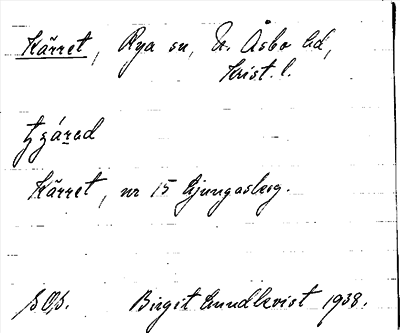 Kärret, Rya sn, N. Åsbo hd,
Krist. l.
Kärret, nr 15 Ljungasberg.
S.O.S. Birgit Lundkvist 1938.